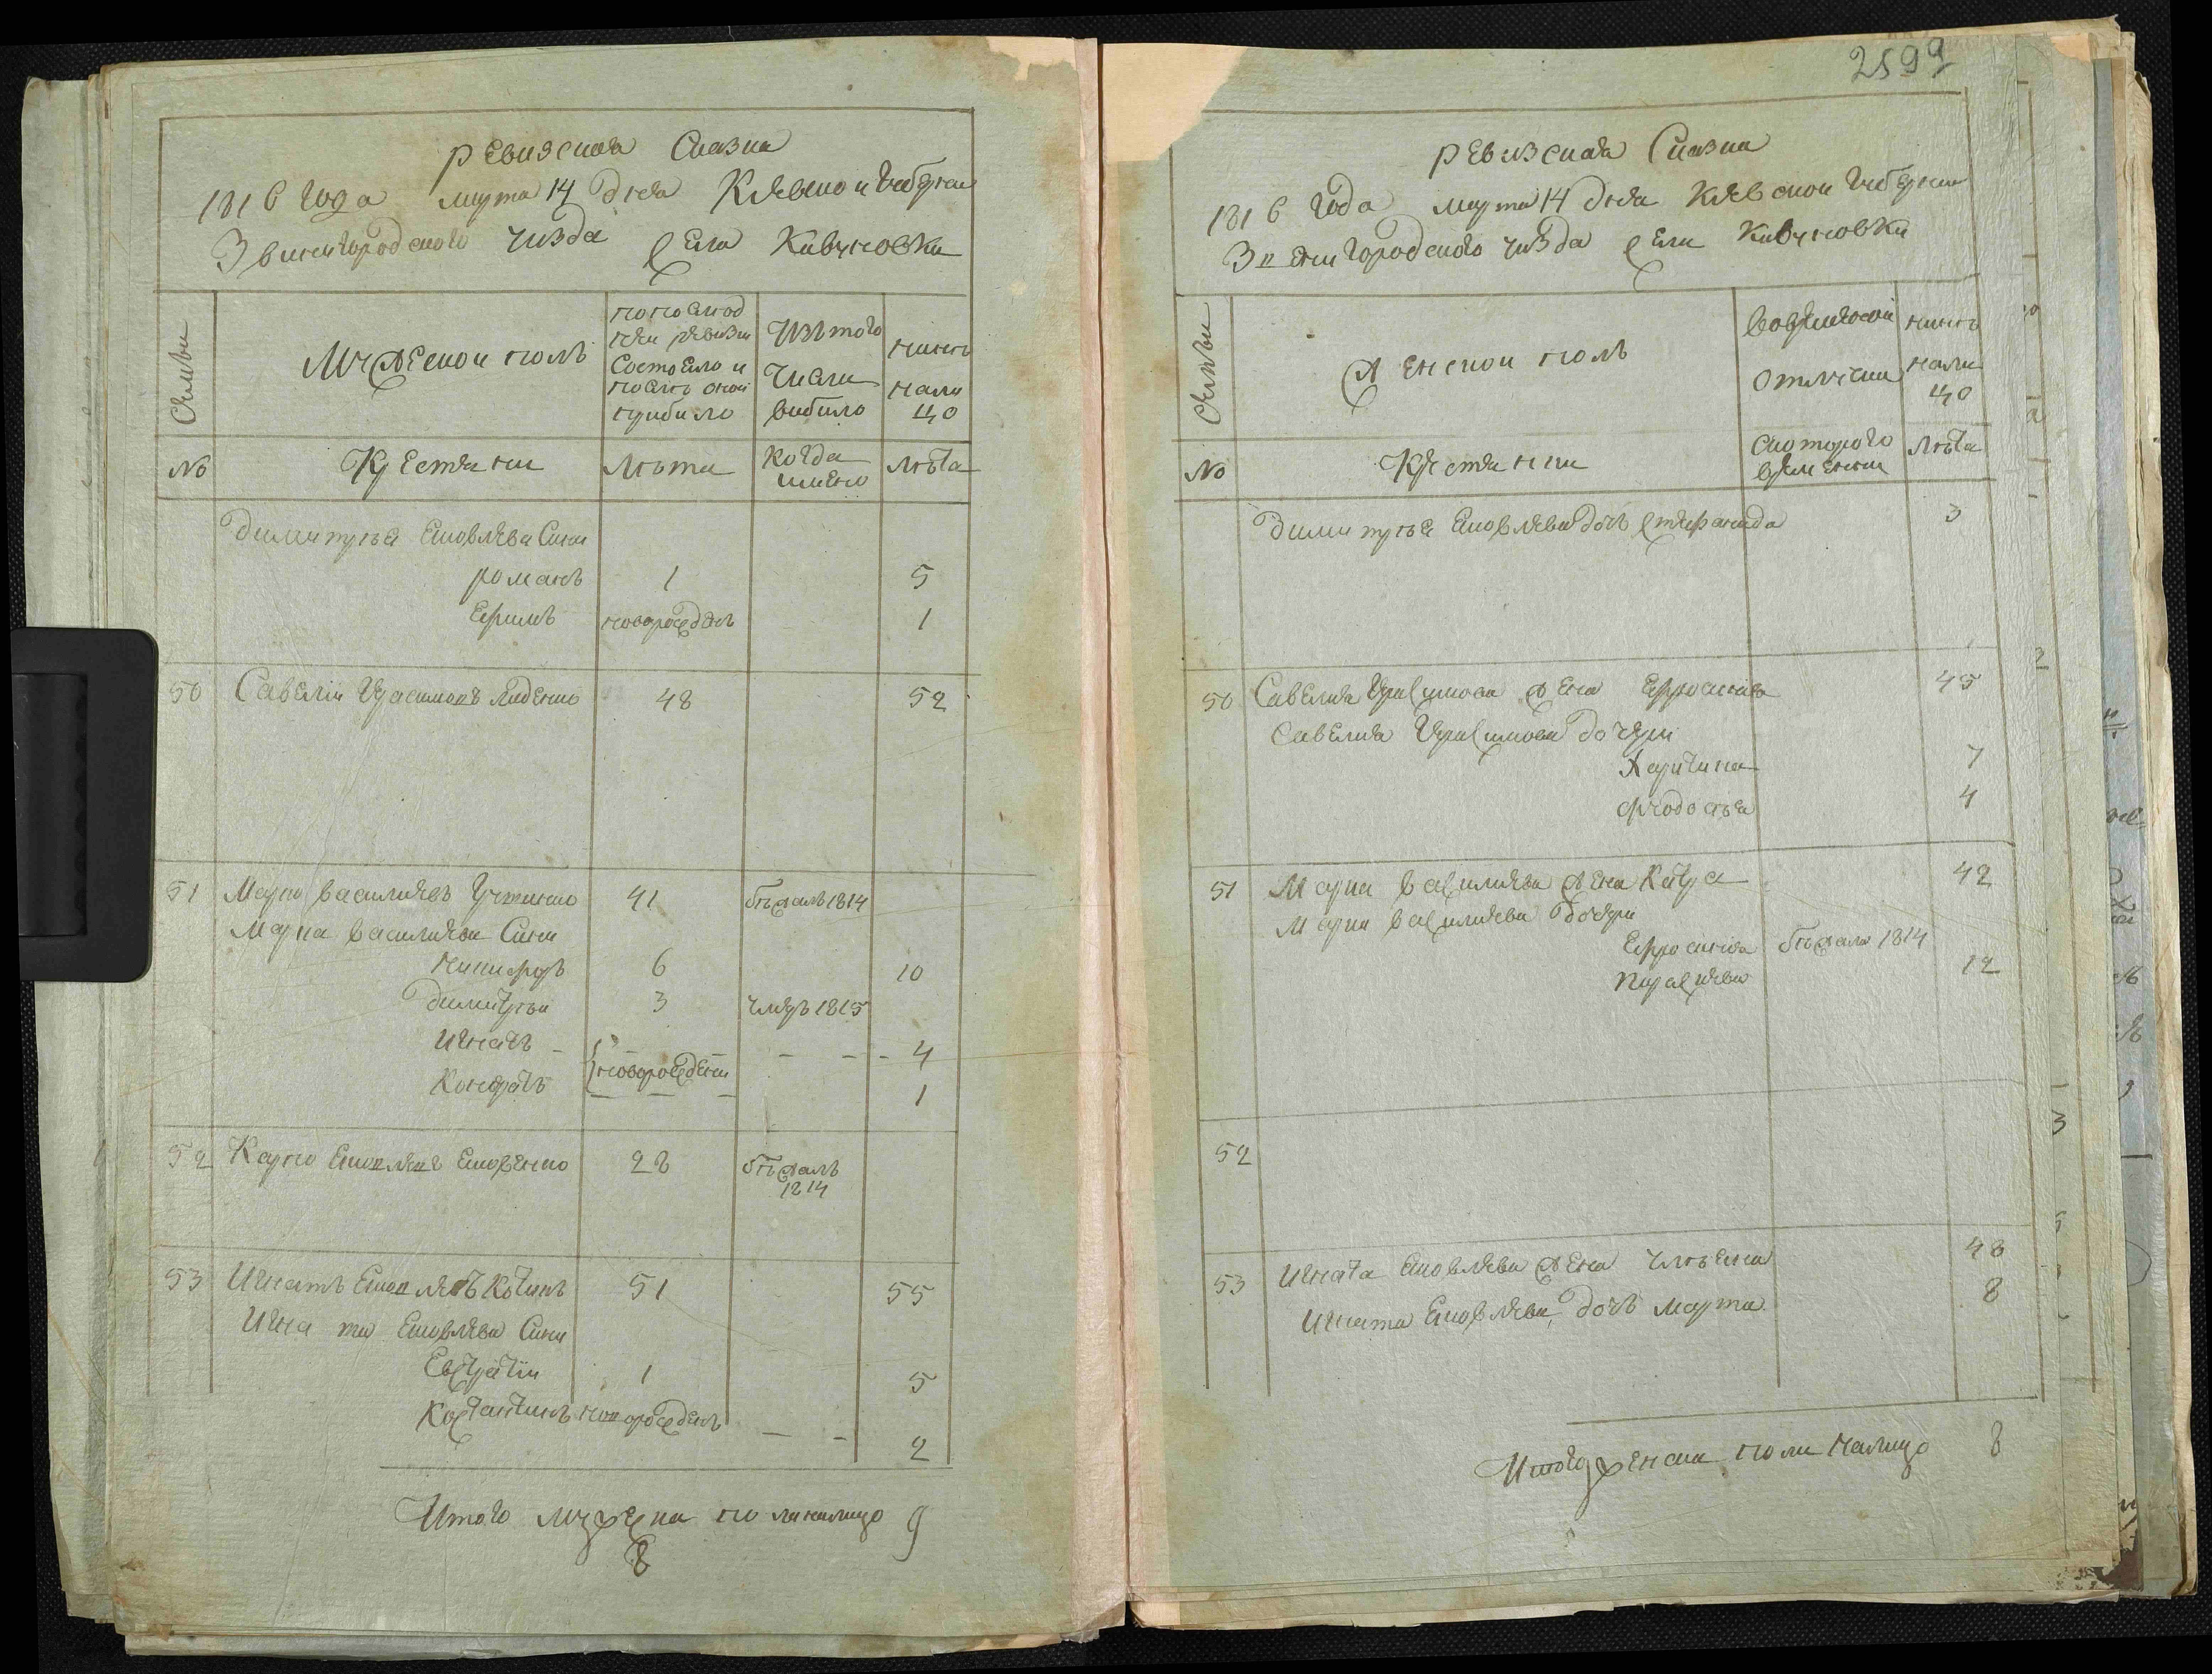 ревизская Сказка
1816 Года марта 14 дня Киевской Губернии
Звенигородского уизда села Кавуновки
Семьи
Мужеской полъ
попослед
ней ревизи
Состояло и
послѣ оной
прибило
Изътого
Числа
вибило
нинѣ
нали
цо
№
Крестяни
Лѣта
Когда
имено
лѣта
Димитрія Яковлева Сини
романъ 1 5
Ефимъ новорожденъ 1
50 Савелій Герасимовъ 48 52
51 Марко василиевъ 41 бѣжалъ 1814
Марка василиева Сини
никифоръ 6 10
Димитрій 3 умеръ 1815
Игнатъ - - - 4
Кондратъ новорождени 1
52 Карпо Яковлевъ 28 бѣжалъ
1814
53 Игнатъ Яковлевъ 51 55
Игната Яковлева Сини
Евстратій 1 5
Костантинъ новорожденъ - - 2
Итого мужеска пола налицо 9
8
2599
ревизская Сказка
1816 Года марта 14 дня Киевской Губернии
Звенигородского уизда села Кавуновки
Семьи
Женской полъ
вовременной
отлучки
нинѣ
нали
цо
№
Крестянки
Скоторого
времени
Лѣта
Димитрія Яковлева дочь степанида 3
50 Савелия Герасимова жена Ефросиния 45
Савелия Герасимова дочери
Харитина 7
феодосия 4
51 Марка василиева жена Катря 42
Марка василиева дочери
Ефросиния бѣжала 1814
12
52
53 Игната Яковлева жена улияна 48
Игната Яковлева дочь марта 8
Итого женска пола налицо 8